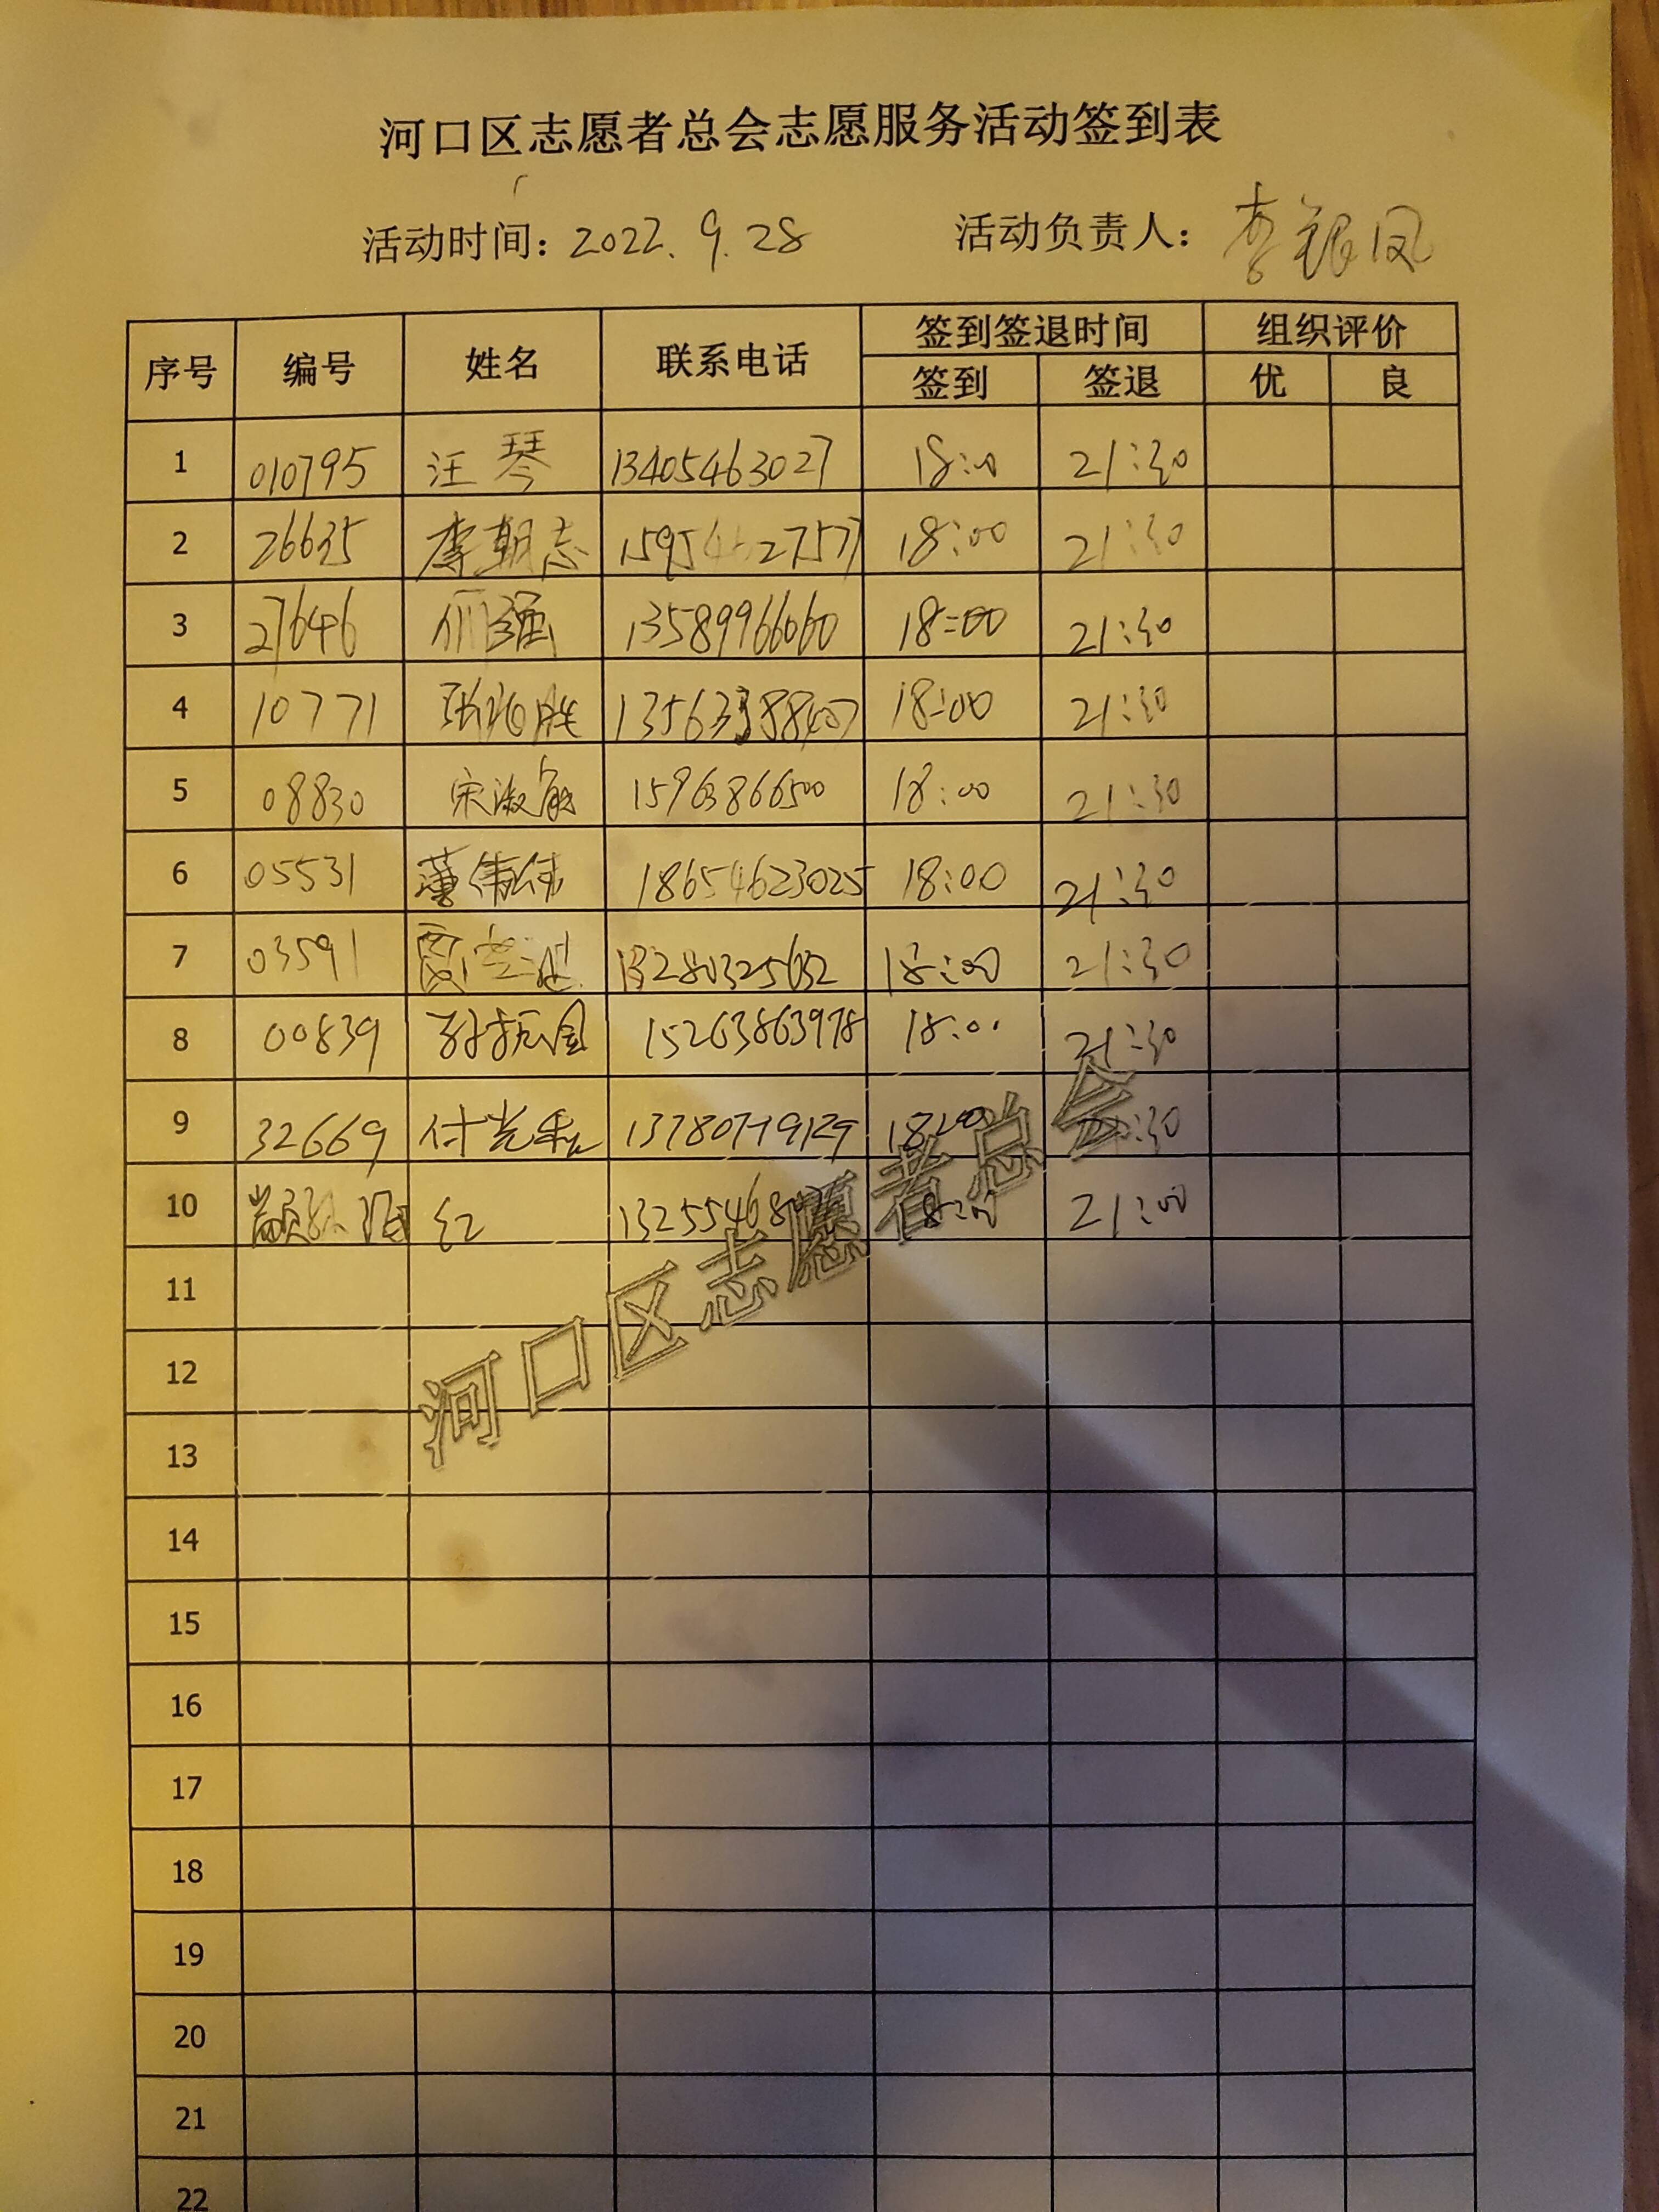 河口区志愿者总会志愿服务活动签到表
活动时间：2022.9.28 活动负责人：李银凤
序号 编号 姓名 联系电话 签到签退时间 组织评价
签到 签退 优 良
1 010795 汪琴 13405463027 18:00 21:30
2 26635 李朝志 18:00 21:30
3 27646 13589966060 18:00 21:30
4 10771 18:00 21:30
5 08830 宋淑敏 15963866500 18:00 21:30
6 05531 薄伟伟 18654623025 18:00 21:30
7 03591 13280325632 18:00 21:30
8 00839 孙振国 15263863978 18:00 21:30
9 32669 付光 13780779129 18:00 21:30
10 红 21:00
11
12
13
14
15
16
17
18
19
20
21
22
河口区志愿者总会